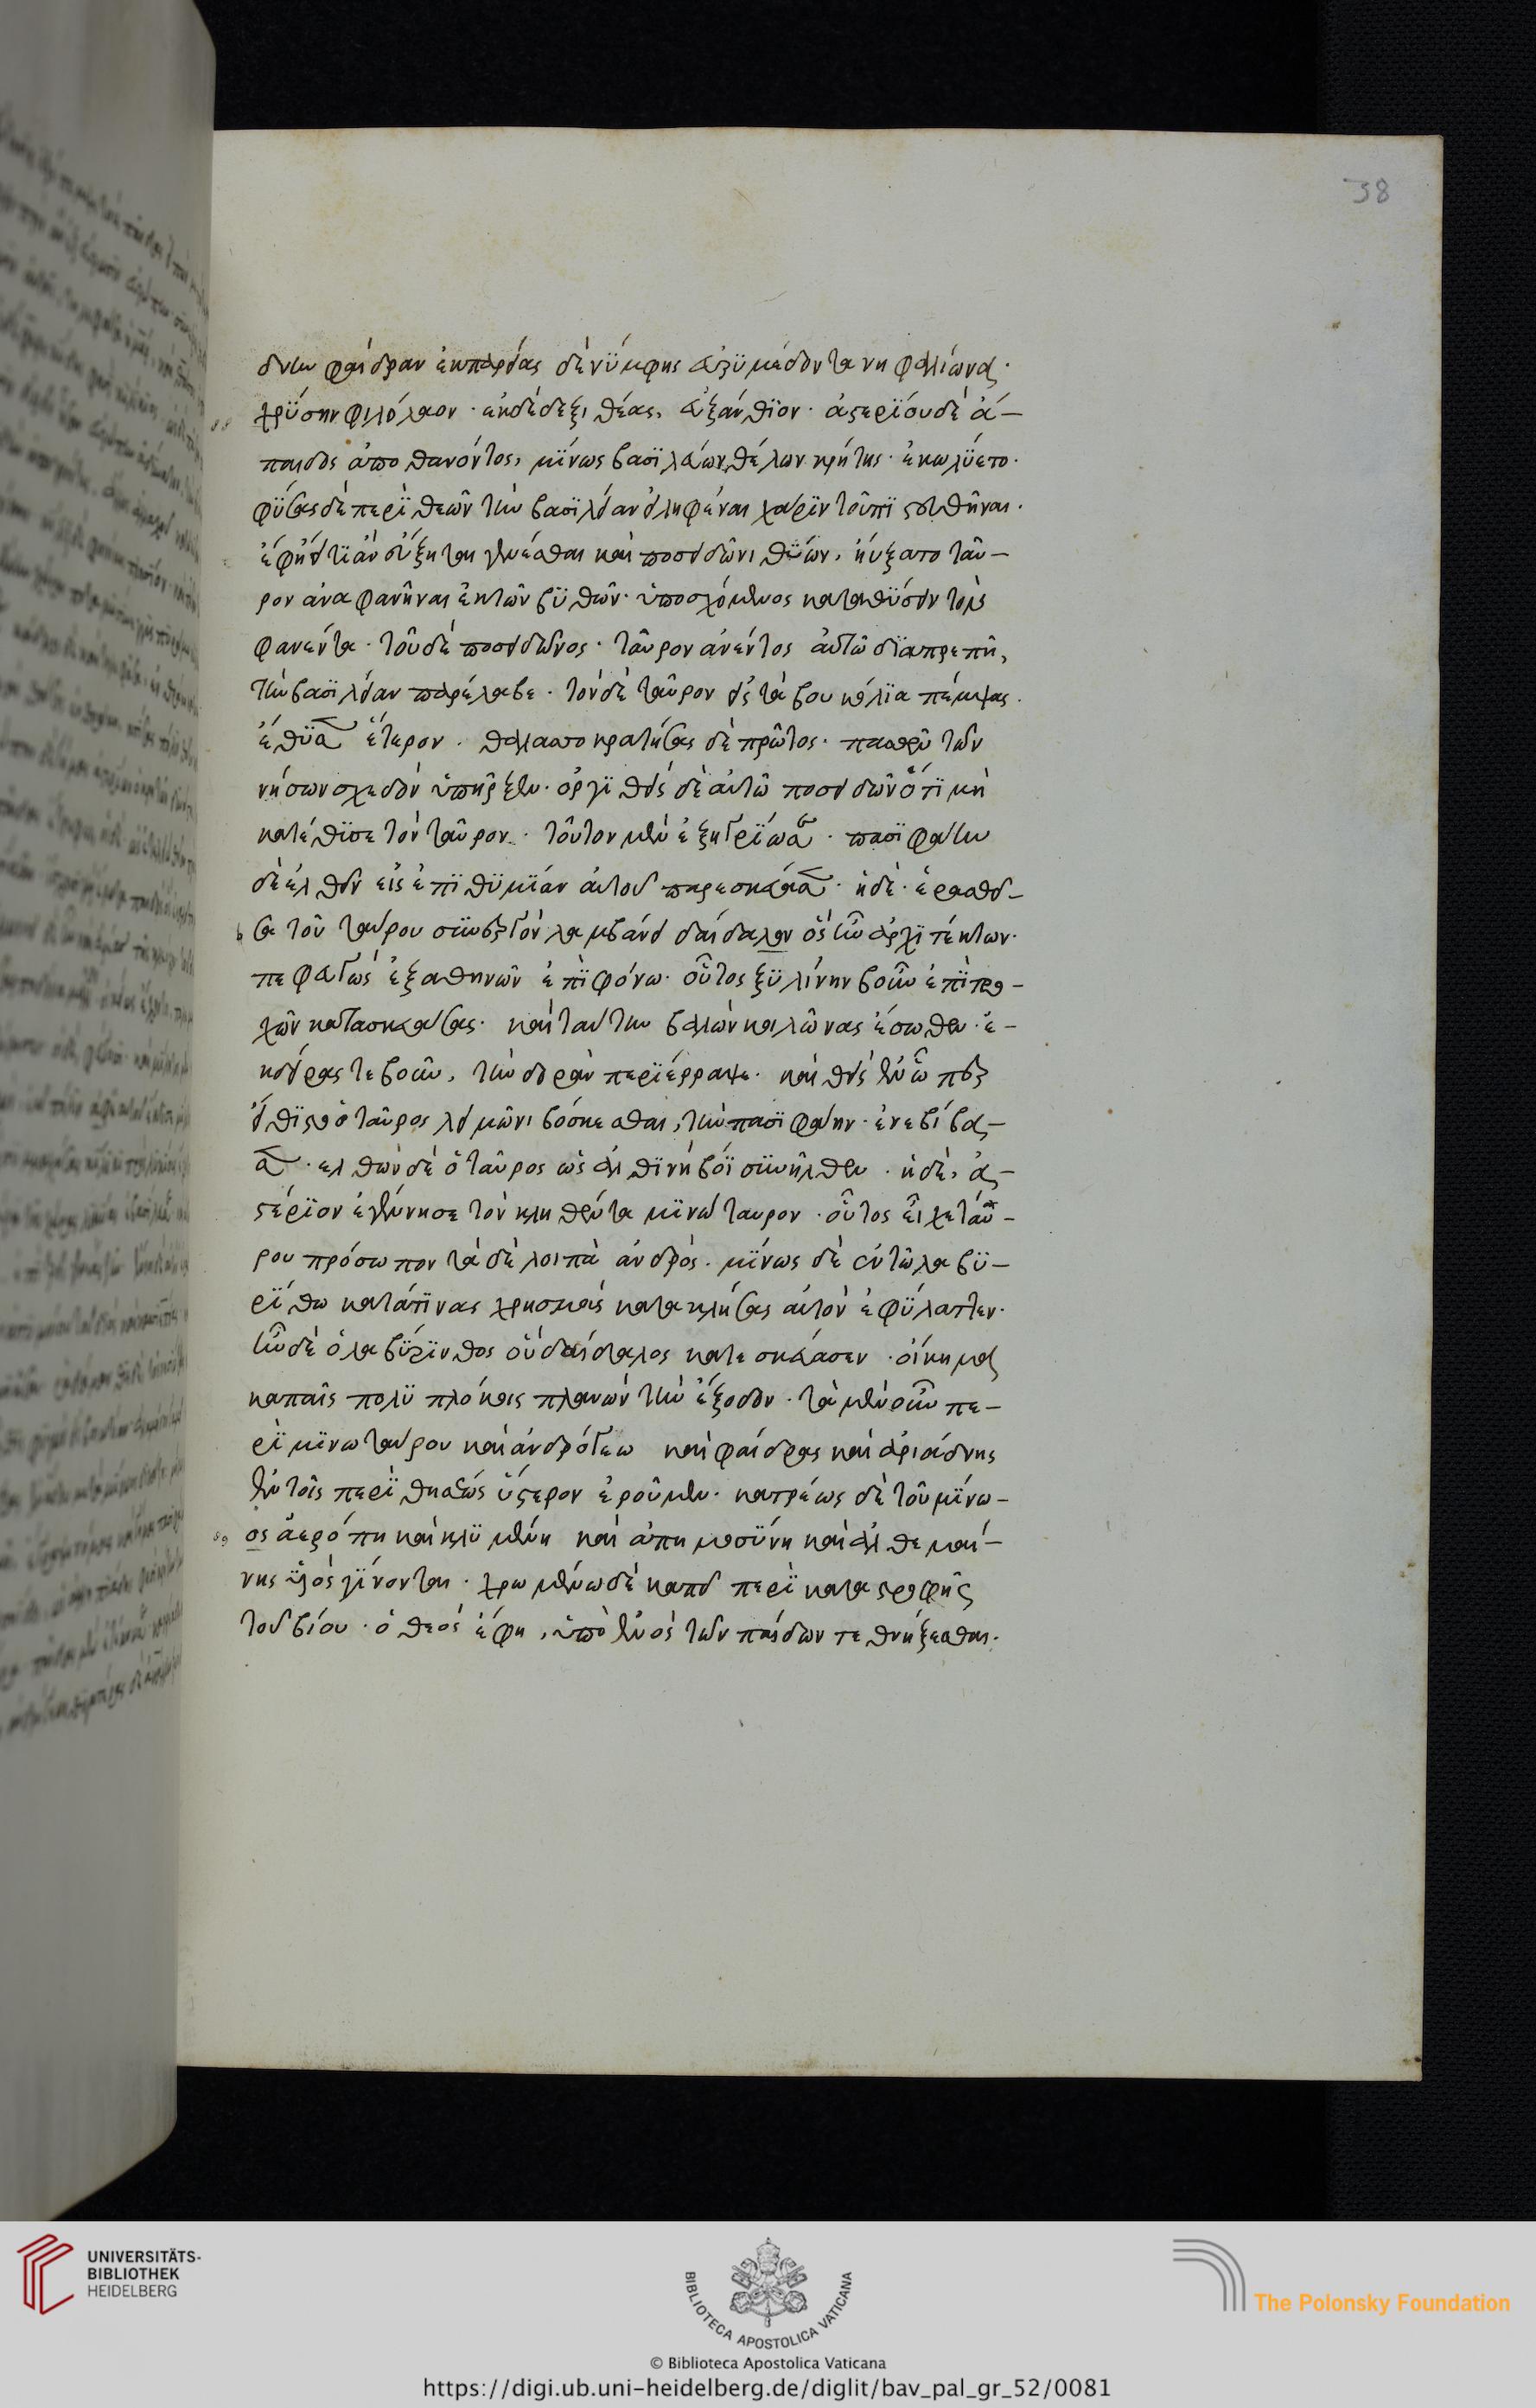 38
δνην φαίδραν ἐκ παρείας δὲ νύμφης εὐρυμέδοντα νηφαλίωνα·
χρύσην φιλόλαον · ἐκ δὲ δεξιθέας, εὐξάνθιον · ἀστερίου δὲ ἄ–
παιδος ἀποθανόντος, μίνως βασιλεύων θέλων κρήτης · ἐκωλύετο·
φήσας δὲ περὶ θεῶν τὴν βασιλείαν εἰληφέναι χάριν τοῦ πιστευθῆναι·
ἔφη ὅ τι ἂν εὔξηται γενέσθαι καὶ ποσειδῶνι θύων, ηὔξατο ταῦ–
ρον ἀναφανῆναι ἐκ τῶν βυθῶν· ὑποσχόμενος καταθύσειν τὸν
φανέντα · τοῦ δὲ ποσειδῶνος · ταῦρον ἀνέντος αὐτῶ διαπρεπῆ,
τὴν βασιλείαν παρέλαβε · τὸν δὲ ταῦρον εἰς τὰ βουκόλια πέμψας·
ἔθυσεν ἕτερον · θαλασσοκρατήσας δὲ πρῶτος · πασῶν τῶν
νήσων σχεδὸν ὑπῆρξεν· ὀργισθεὶς δὲ αὐτῶ ποσειδῶν ὅτι μὴ
κατέθυσε τὸν ταῦρον · τοῦτον μὲν ἐξηγρίωσε · πασιφάην
δὲ ἐλθεῖν εἰς ἐπιθυμίαν αὐτοῦ παρεσκεύασεν · ἡ δὲ · ἐρασθεῖ–
σα τοῦ ταύρου συνεργὸν λαμβάνει δαίδαλον ὃς ἦν ἀρχιτέκτων·
πεφευγὼς ἐξ ἀθηνῶν ἐπὶ φόνω· οὗτος ξυλίνην βοῦν ἐπὶ τρο–
χῶν κατασκευάσας· καὶ ταύτην βαλὼν κοιλώνας ἔσωθεν · ἐ–
κδείρας τε βοῦν, τὴν δορὰν περιέρραψε· καὶ θεὶς ἐν ὧπερ
εἴθιστο ὁ ταῦρος λειμῶνι βόσκεσθαι, τὴν πασιφάην· ἐνεβίβα–
σεν · ἐλθὼν δὲ ὁ ταῦρος ὡς ἀληθινῆ βοῒ συνῆλθεν · ἡ δὲ, ἀ–
στέριον ἐγέννησε τὸν κληθέντα μινώταυρον · οὗτος εἶχε ταύ–
ρου πρόσωπον τὰ δὲ λοιπὰ ἀνδρός · μίνως δὲ ἐν τῶ λαβυ–
ρίθω κατά τινας χρησμοὺς κατακλήσας αὐτὸν ἐφύλαττεν·
ἦν δὲ ὁ λαβύρινθος οὗ δαίδαλος κατεσκεύασεν · οἴκημα
καπαῖς πολυπλόκοις πλανῶν τὴν ἔξοδον · τὰ μὲν οὖν πε–
ρὶ μινωταύρου καὶ ἀνδρόγεω καὶ φαίδρας καὶ ἀριάδνης
ἐν τοῖς περὶ θησέως ὕστερον ἐροῦμεν· κατρέως δὲ τοῦ μίνω–
ος ἀερόπη καὶ κλυμένη καὶ ἀπημοσύνη καὶ ἀλθεμαί–
νης υἱὸς γίνονται · χρωμένω δὲ καπεῖ περὶ καταστροφῆς
τοῦ βίου · ὁ θεὸς ἔφη, ὑπὸ ἑνὸς τῶν παίδων τεθνήξεσθαι·
UNIVERSITÄTS-
BIBLIOTHEK
HEIDELBERG
BIBLIOTECA APOSTOLICA VATICANA
The Polonsky Foundation
© Biblioteca Apostolica Vaticana
https://digi.ub.uni-heidelberg.de/diglit/bav_pal_gr_52/0081